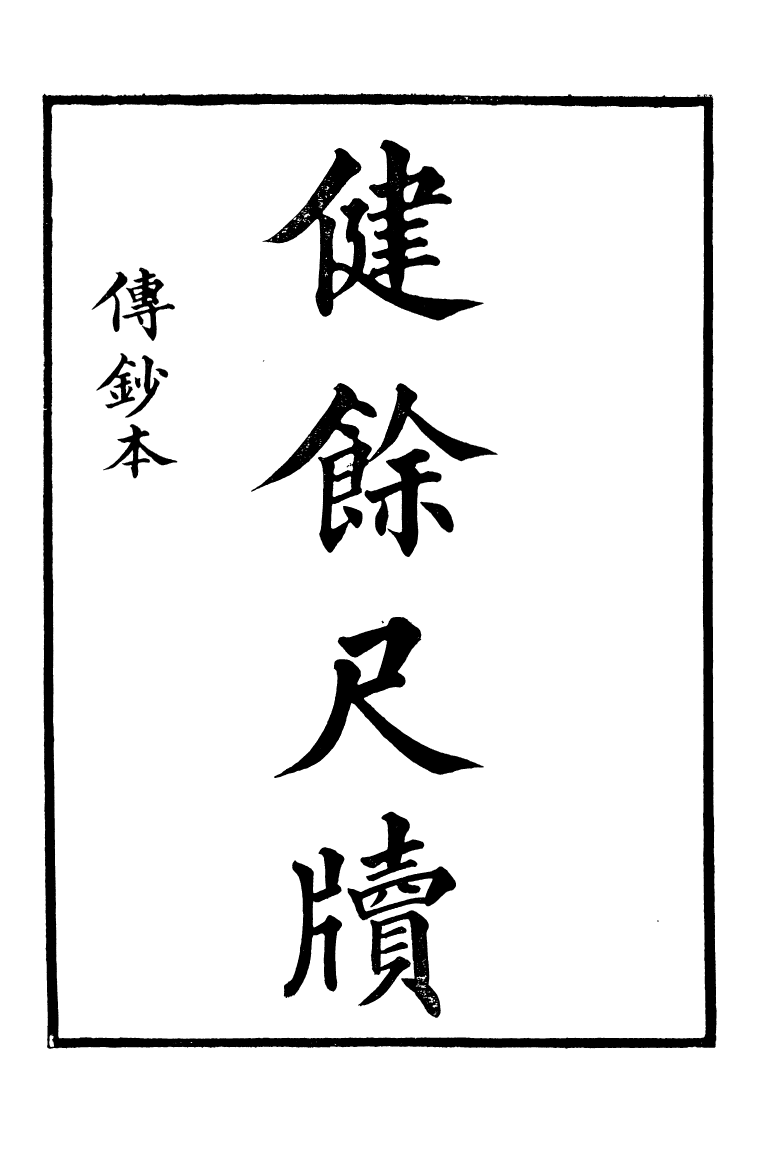 健餘尺牘
傳鈔本